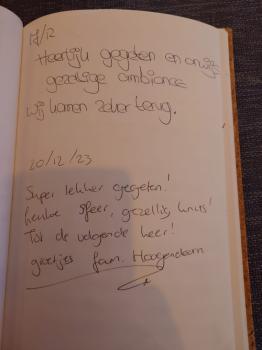 17/12
Heerlijk gegeten en onwijs
gezellige ambiance
Wij komen zeker terug.
20/12/23
Super lekker gegeten!
leuke sfeer, gezellig, knus!
Tot de volgende keer!
groetjes fam. Hoogendoorn